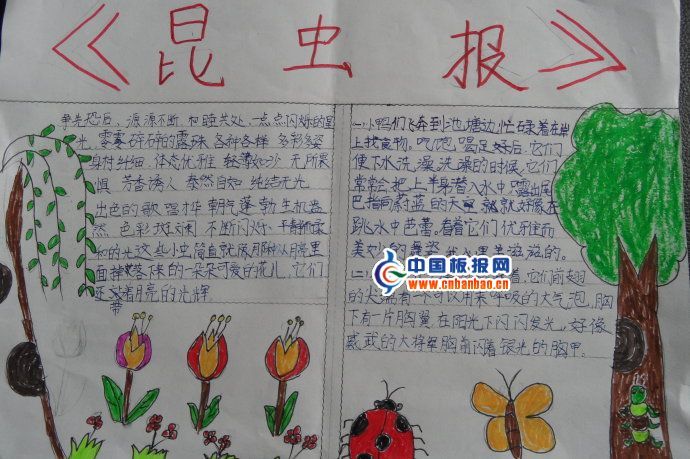 《昆虫报》
争先恐后、源源不断 和睦共处 一点点闪烁的星
光 零零碎碎的露珠 各种各样 多彩多姿
身材纤细、体态优雅 轻薄如沙 无所畏
惧 芳香诱人 泰然自如 纯洁无光
出色的歌唱才华 朝气蓬勃 生机盎
然 色彩斑斓 不断闪烁
和的光 这些小虫简直就像用那从月亮里
面 掉落下来的一朵朵可爱的花儿，它们
还 带着月亮的光辉
(一)小鸭们飞奔到池塘边，忙碌着在岸
上找食物。吃饱喝足好后，它们
便下水洗澡，洗澡的时候，它们
常常把上半身潜入水中，露出尾
巴指向蔚蓝的天空，就好像在
跳水中芭蕾，看着它们优雅而
美妙的舞姿 我心里美滋滋的。
着，它们前翅
的尖端有一个可以用来呼吸的大气泡，胸
下有一片胸翼，在阳光下闪闪发光，好像
威武的大将军胸前闪着银光的胸甲。
中国板报网
www.cnbanbao.cn